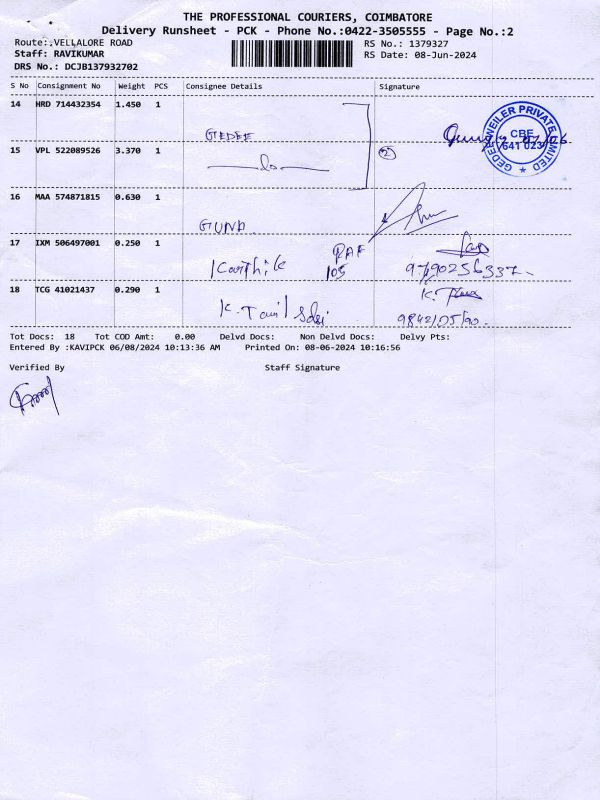 THE PROFESSIONAL COURIERS, COIMBATORE
Delivery Runsheet - PCK - Phone No.:0422-3505555 - Page No.:2
Route:.VELLALORE ROAD
RS No.: 1379327
Staff: RAVIKUMAR
RS Date: 08-Jun-2024
DRS No.: DCJB137932702
S No Consignment No Weight PCS Consignee Details Signature
14 HRD 714432354 1.450 1
GEDEE
GEDEE WEILER PRIVATE LIMITED
CBE
641 023
15 VPL 522089526 3.370 1
do
2
16 MAA 574871815 0.630 1
GUND
17 IXM 506497001 0.250 1
Karthik
RAF
105
9790256337
18 TCG 41021437 0.290 1
K. Tamil Selvi
Tot Docs: 18 Tot COD Amt: 0.00 Delvd Docs: Non Delvd Docs: Delvy Pts:
Entered By :KAVIPCK 06/08/2024 10:13:36 AM Printed On: 08-06-2024 10:16:56
Verified By Staff Signature